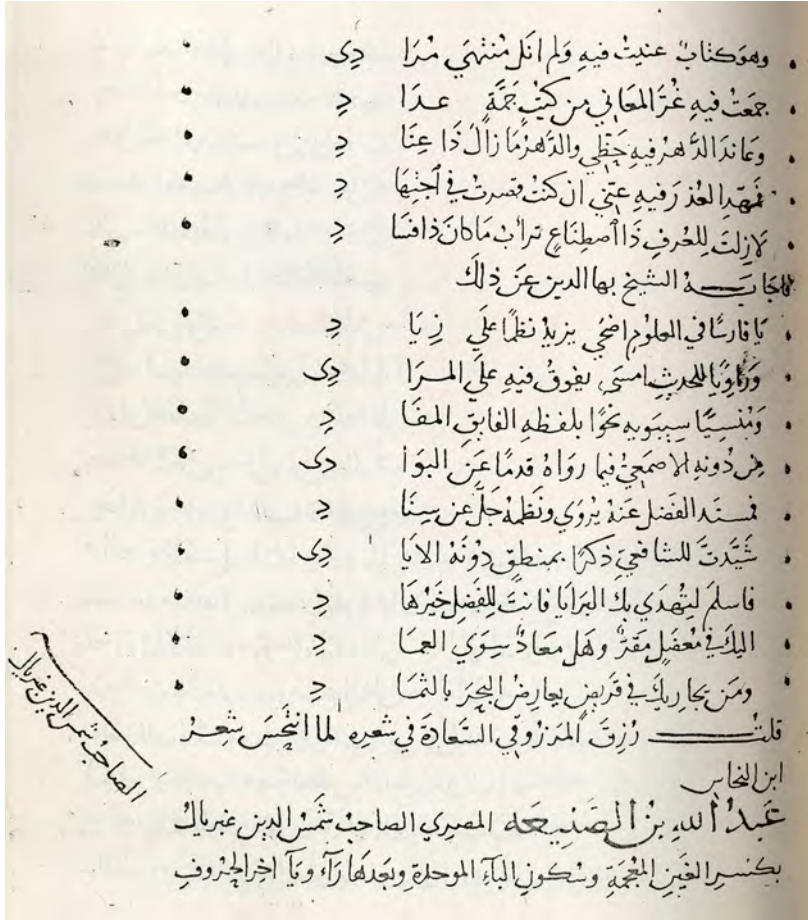 وهو كتاب عنيت فيه ولم انل منتهي مرا دى
جمعت فيه غر المعاني من كتب جمة عدا د
وعاند الدهر فيه حظي والدهر ما زال ذا عنا د
فمهد العذر فيه عني ان كنت قصرت في اجتها د
لازلت للعرف ذا اصطناع تراب ما كان ذا فسا د
فاجابه الشيخ بها الدين عن ذلك
يا فارسا في العلوم اضحي يزيد نظما علي زيا د
وراويا للحديث امسى يفوق فيه علي المرا دى
ومنسيا سيبويه نحوا بلفظه الفايق المفا د
من دونه الاصمعي فيما رواه قدما عن البوا دى
فمسند الفضل عنه يروي ونظمه جل عن سنا د
شيدت للشافعي ذكرا بمنطق دونه الايا دى
فاسلم ليهدي بك البرايا فانت للفضل خير ها د
اليك في معضل مفر وهل معاذ سوي العما د
ومن يجاريك في قريض يعارض البحر بالثما د
قلت رزق المرزوقي السعادة في شعره لما انتحس شعر
ابن النحاس
عبد الله بن الصنيعه المصري الصاحب شمس الدين غبريال
بكسر الغين المعجمة وسكون الباء الموحدة وبعدها راء ويآ اخر الحروف
الصاحب شمس الدين غبريال